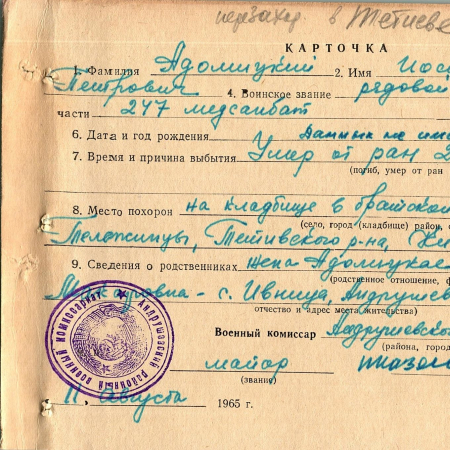 перезахор. в Тетиеве
КАРТОЧКА
1. Фамилия Адолицкий 2. Имя Иос
Петрович 4. Воинское звание рядовой
части 247 медсанбат
6. Дата и год рождения Данных не име
7. Время и причина выбытия Умер от ран 2
(погиб, умер от ран
8. Место похорон на кладбище в братской
(село, город (кладбище) район, о
Теложинцы, Тетивского р-на, Ки
9. Сведения о родственниках жена Адолицкая
(родственное отношение, ф
Макаровна - с. Ивница, Андрушев
отчество и адрес места жительства)
Военный комиссар Андрушевско
(района, город
майор
(звание)
11. Августа 1965 г.
АНДРУШЕВСКИЙ РАЙОННЫЙ ВОЕННЫЙ КОМИССАРИАТ